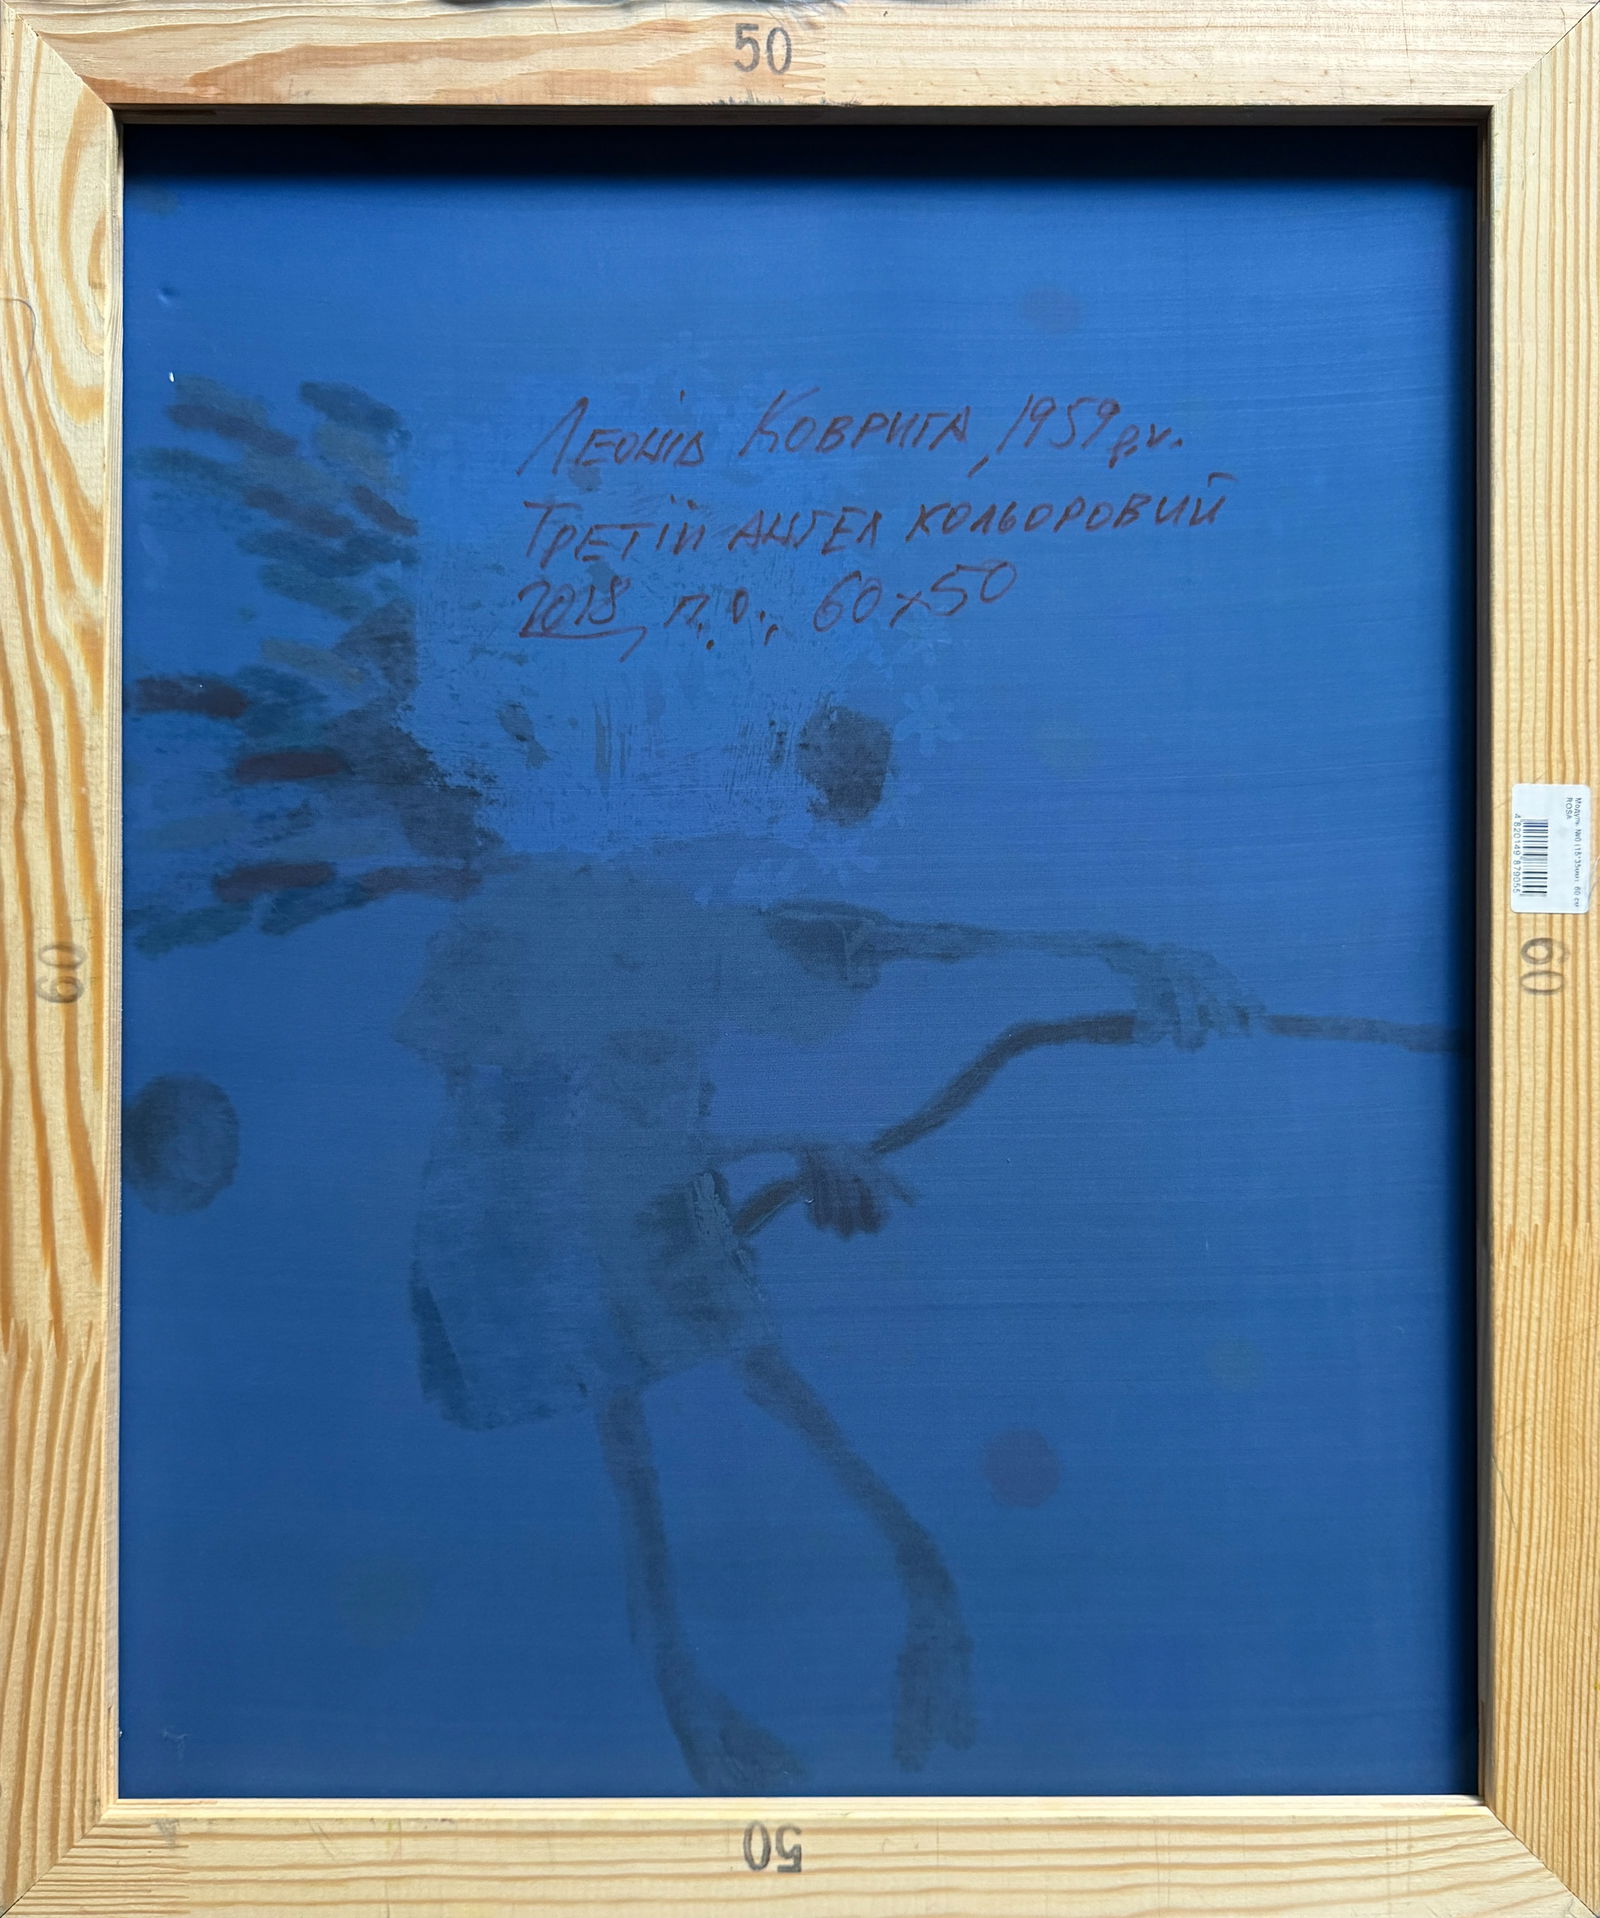 50
Леонід Коврига, 1959 р.н.
Третій ангел кольоровий
2018, п.о., 60х50
Модуль №0 (18*35мм) 60 см
ROSA
4 820149 879055
60
60
50